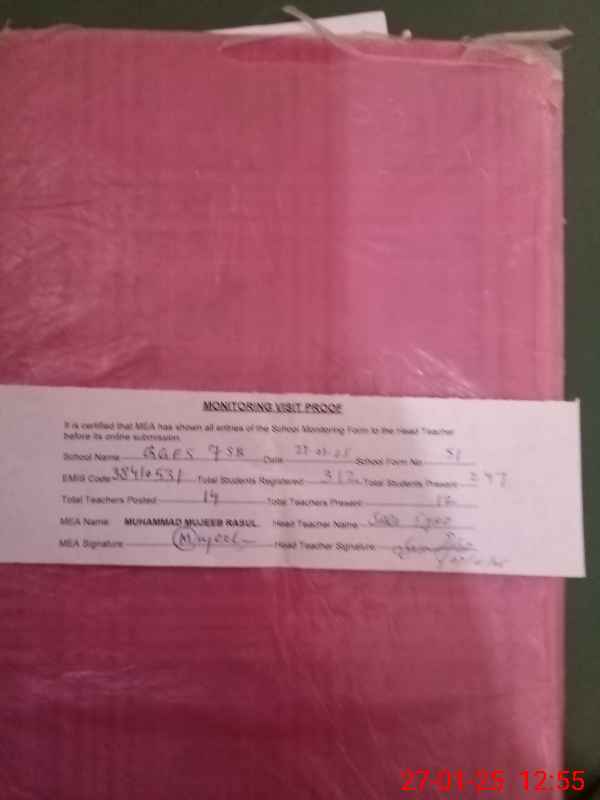 MONITORING VISIT PROOF
It is certified that MEA has shown all entries of the School Monitoring Form to the Head Teacher
before its online submission.
School Name GGES 7SB Date 27-01-25 School Form No 51
EMIS Code 38410531 Total Students Registered 312 Total Students Present
Total Teachers Posted 14 Total Teachers Present
MEA Name MUHAMMAD MUJEEB RASUL. Head Teacher Name
MEA Signature Mujeeb Head Teacher Signature
27-01-25 12:55